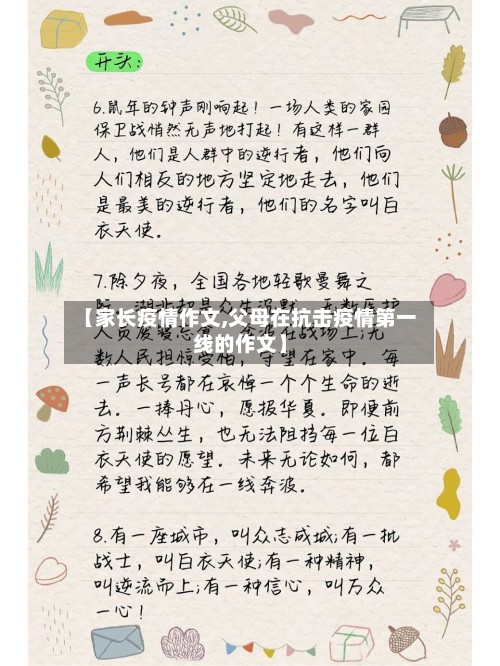 开头:
6.鼠年的钟声刚响起！一场人类的家园
保卫战悄然无声地打起！有这样一群
人，他们是人群中的逆行者，他们向
人们相反的地方坚定地走去，他们
是最美的逆行者，他们的名字叫白
衣天使。
7.除夕夜，全国各地轻歌曼舞之
【家长疫情作文,父母在抗击疫情第一
线的作文】
数人民担惊受怕，守望在家中。每
一声长号都在哀悼一个个生命的逝
去。一捧丹心，愿报华夏。即便前
方荆棘丛生，也无法阻挡每一位白
衣天使的愿望。未来无论如何，都
希望我能够在一线奔波。
8.有一座城市，叫众志成城;有一批
战士，叫白衣天使;有一种精神，
叫逆流而上;有一种信心，叫万众
一心！